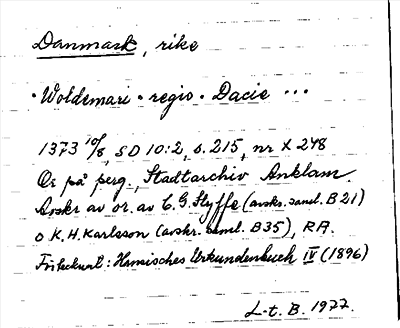 Danmark, rike
· Woldemari · regio · Dacie ···
1373 10/8, SD 10:2, s. 215, nr X 248
Or på perg., Stadtarchiv Anklam.
Avskr av or. av C.G. Styffe (avskr. saml. B 21)
o K.H. Karlsson (avskr. saml. B 35), RA.
Tryckt: Hansisches Urkundenbuch IV (1896)
L-t. B. 1977.